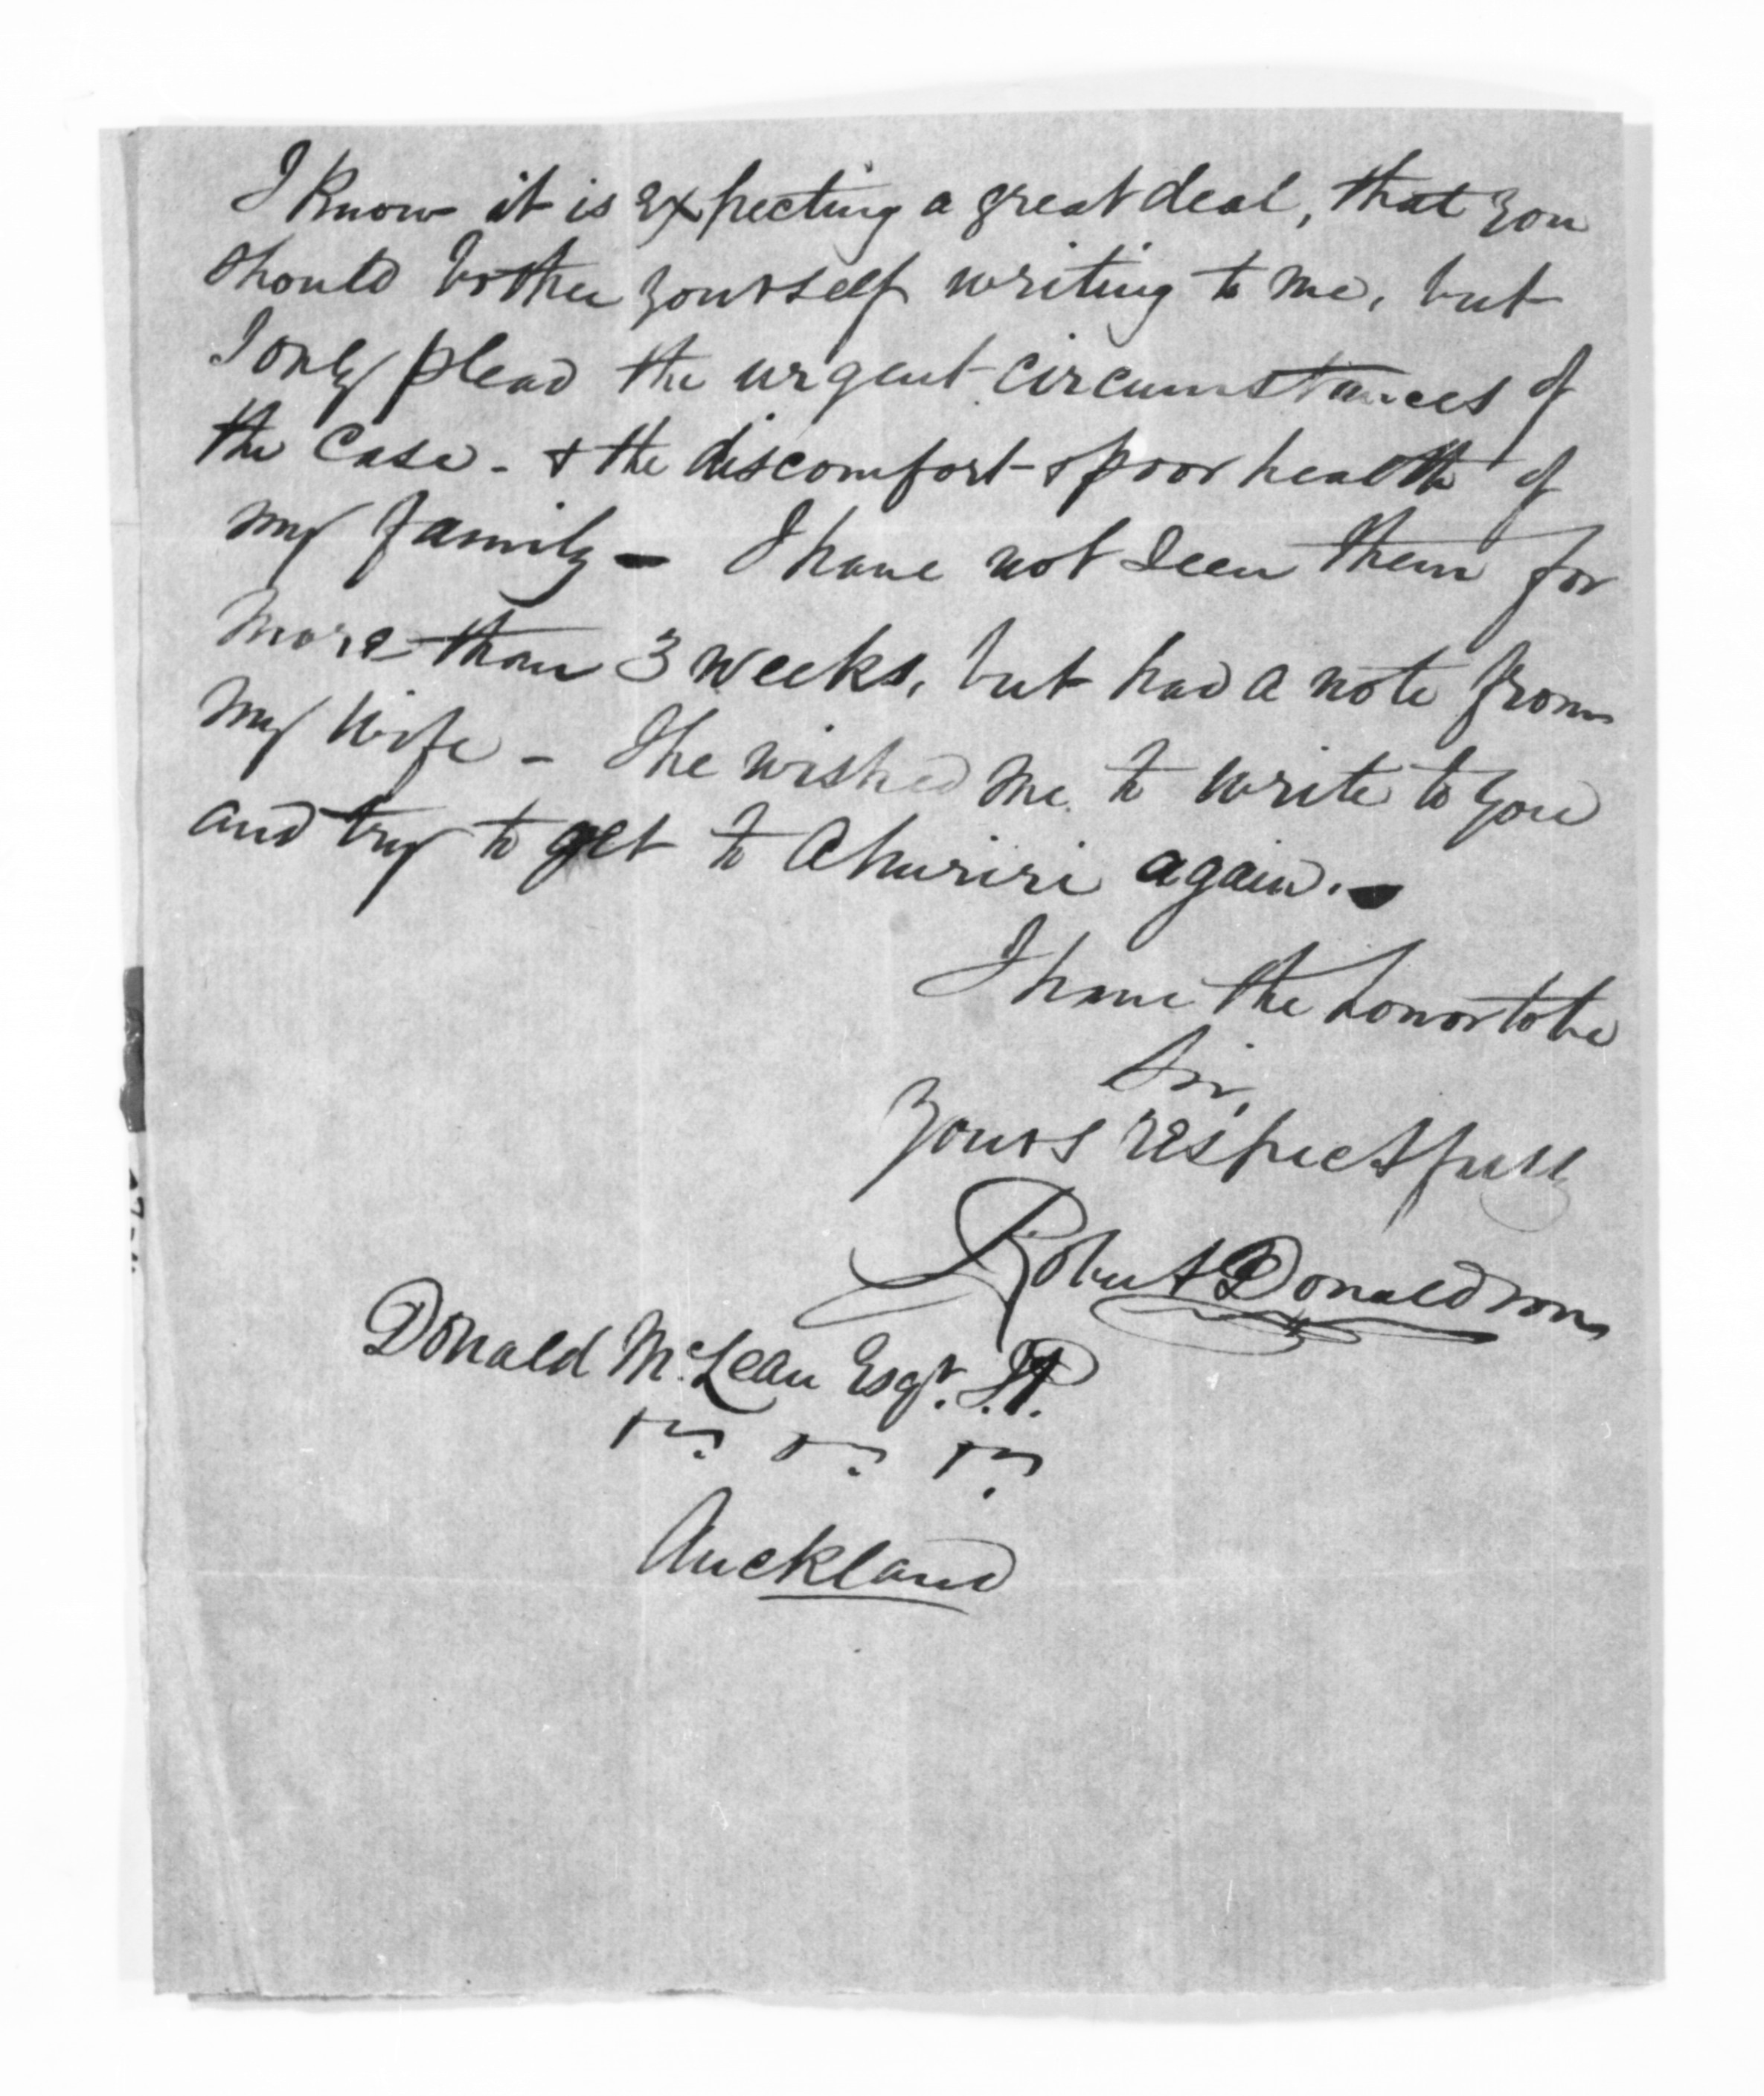 I know it is expecting a great deal, that you
should bother yourself writing to me, but
I only plead the urgent circumstances of
the case - & the discomfort & poor health of
my family - I have not seen them for
more than 3 weeks, but had a note from
my wife - She wished me to write to you
and try to get to Ahuriri again. -
I have the honor to be
Sir,
Yours respectfully
Robert Donaldson
Donald McLean Esqr. J.P.
Auckland